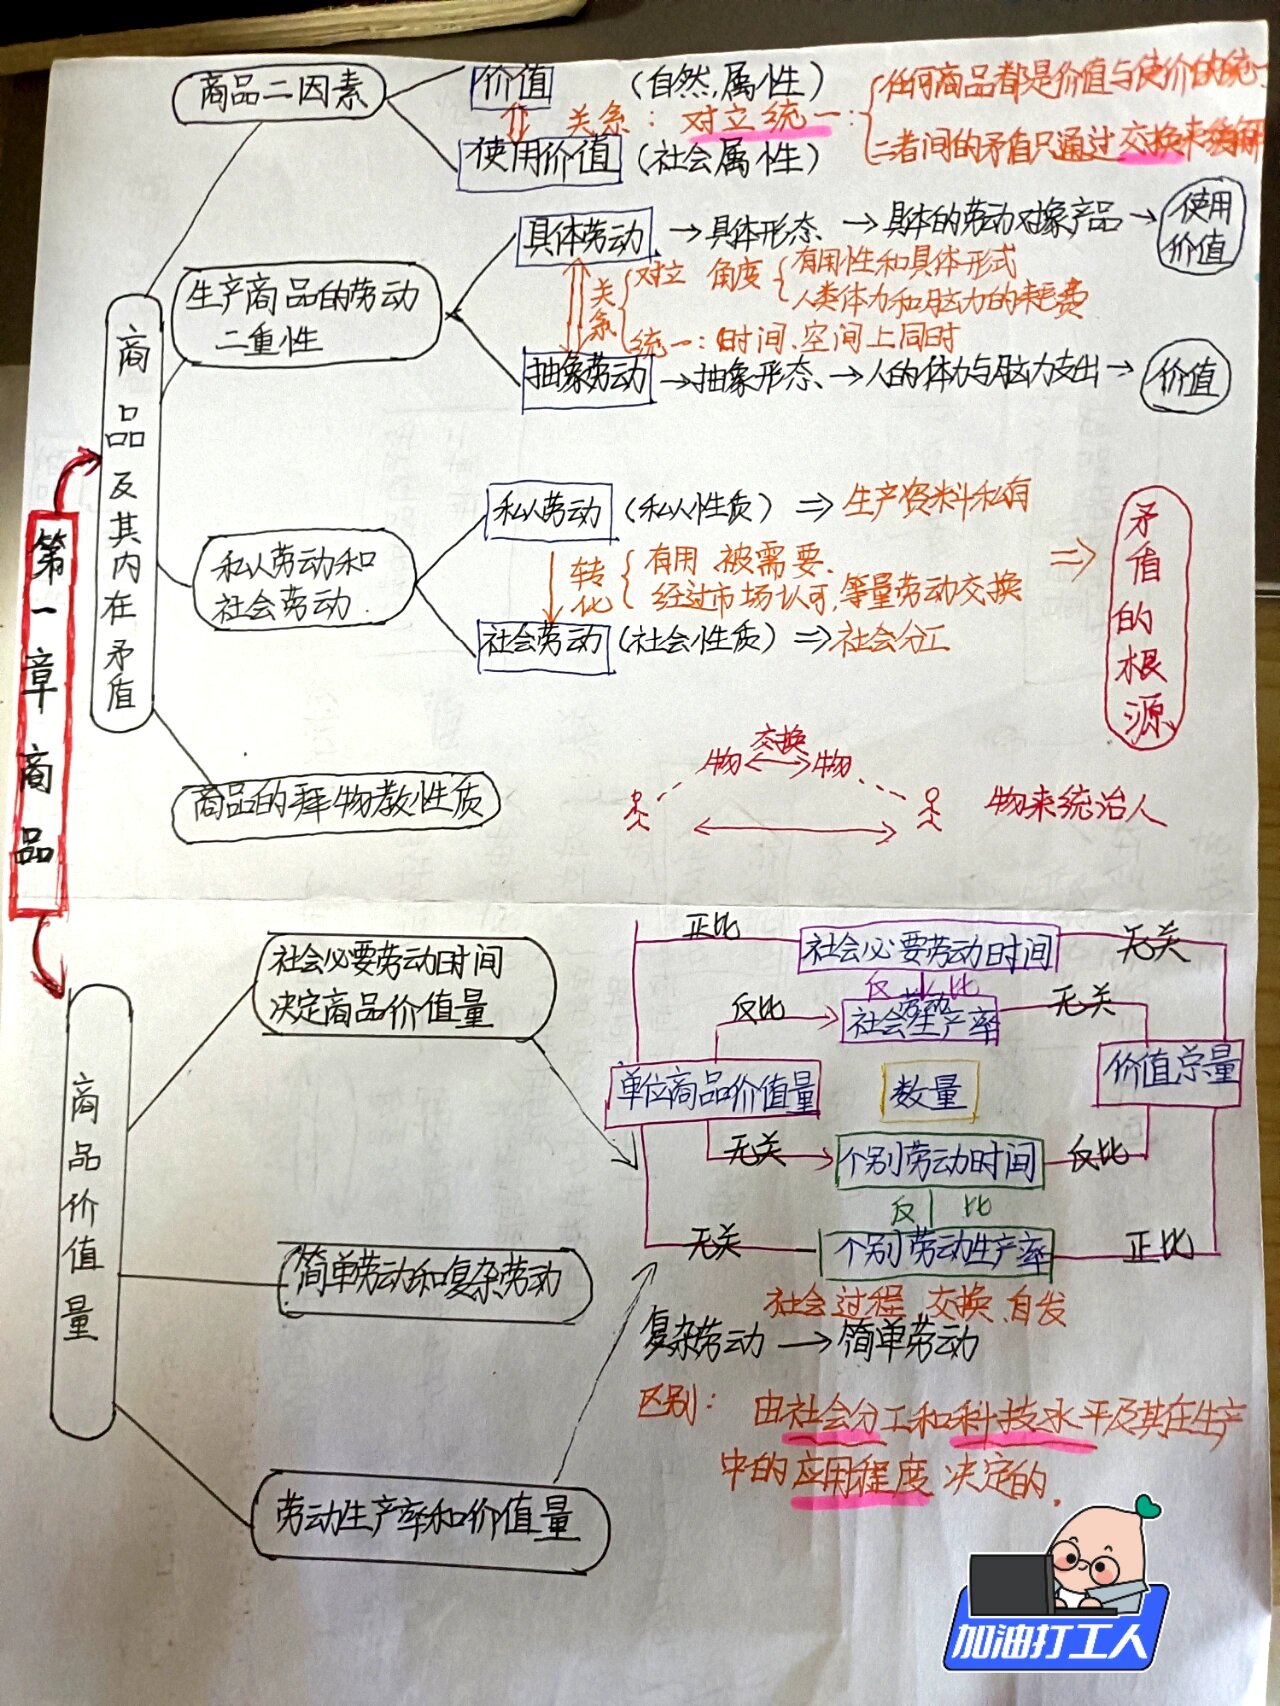 第一章商品
商品及其内在矛盾
商品二因素
价值 (自然属性)
关系：对立统一：
任何商品都是价值与使价的统一
二者间的矛盾只通过交换来
使用价值 (社会属性)
生产商品的劳动
二重性
具体劳动 →具体形态、→具体的劳动对象产品→ 使用
价值
关系
对立 角度
有用性和具体形式
人类体力和脑力的耗费
统一：时间、空间上同时
抽象劳动 →抽象形态、→人的体力与脑力支出→ 价值
私人劳动和
社会劳动
私人劳动 (私人性质) ⇒ 生产资料私有
转化
有用、被需要、
经过市场认可,等量劳动交换
社会劳动 (社会性质) ⇒社会分工
⇒ 矛盾的根源
商品的拜物教性质
交换
物 ↔ 物
物来统治人
商品价值量
社会必要劳动时间
决定商品价值量
简单劳动和复杂劳动
劳动生产率和价值量
正比 社会必要劳动时间 无关
反 比
反比 劳动 无关
社会生产率
单位商品价值量 数量 价值总量
无关 个别劳动时间 反比
反 比
无关 个别劳动生产率 正比
社会过程、交换、自发
复杂劳动 → 简单劳动
区别： 由社会分工和科技水平及其在生产
中的应用程度决定的.
加油打工人